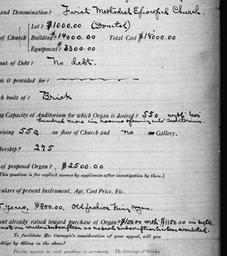 and Denomination? First Methodist Episcopal Church.
Lot? $1000.00 (Donated)
of Church Building? $14000.00 Total Cost $18000.00
Equipment? $3300.00
out of Debt? No debt.
is it provided for?
ch built of? Brick
g Capacity of Auditorium for which Organ is desired? 550 with two
hundred more in rooms opening into auditorium
rising 550 on floor of Church and no Gallery.
bership? 275
of proposed Organ? $2500.00
space is for explicit answer by applicants after investigation by them.]
ulars of present Instrument, Age, Cost Price, Etc.
Years, $800.00. Old fashion King organ.
nt already raised toward purchase of Organ? with $1150.00 in
To facilitate Mr. Carnegie's consideration of your appeal, will you
oblige by filling in the above?